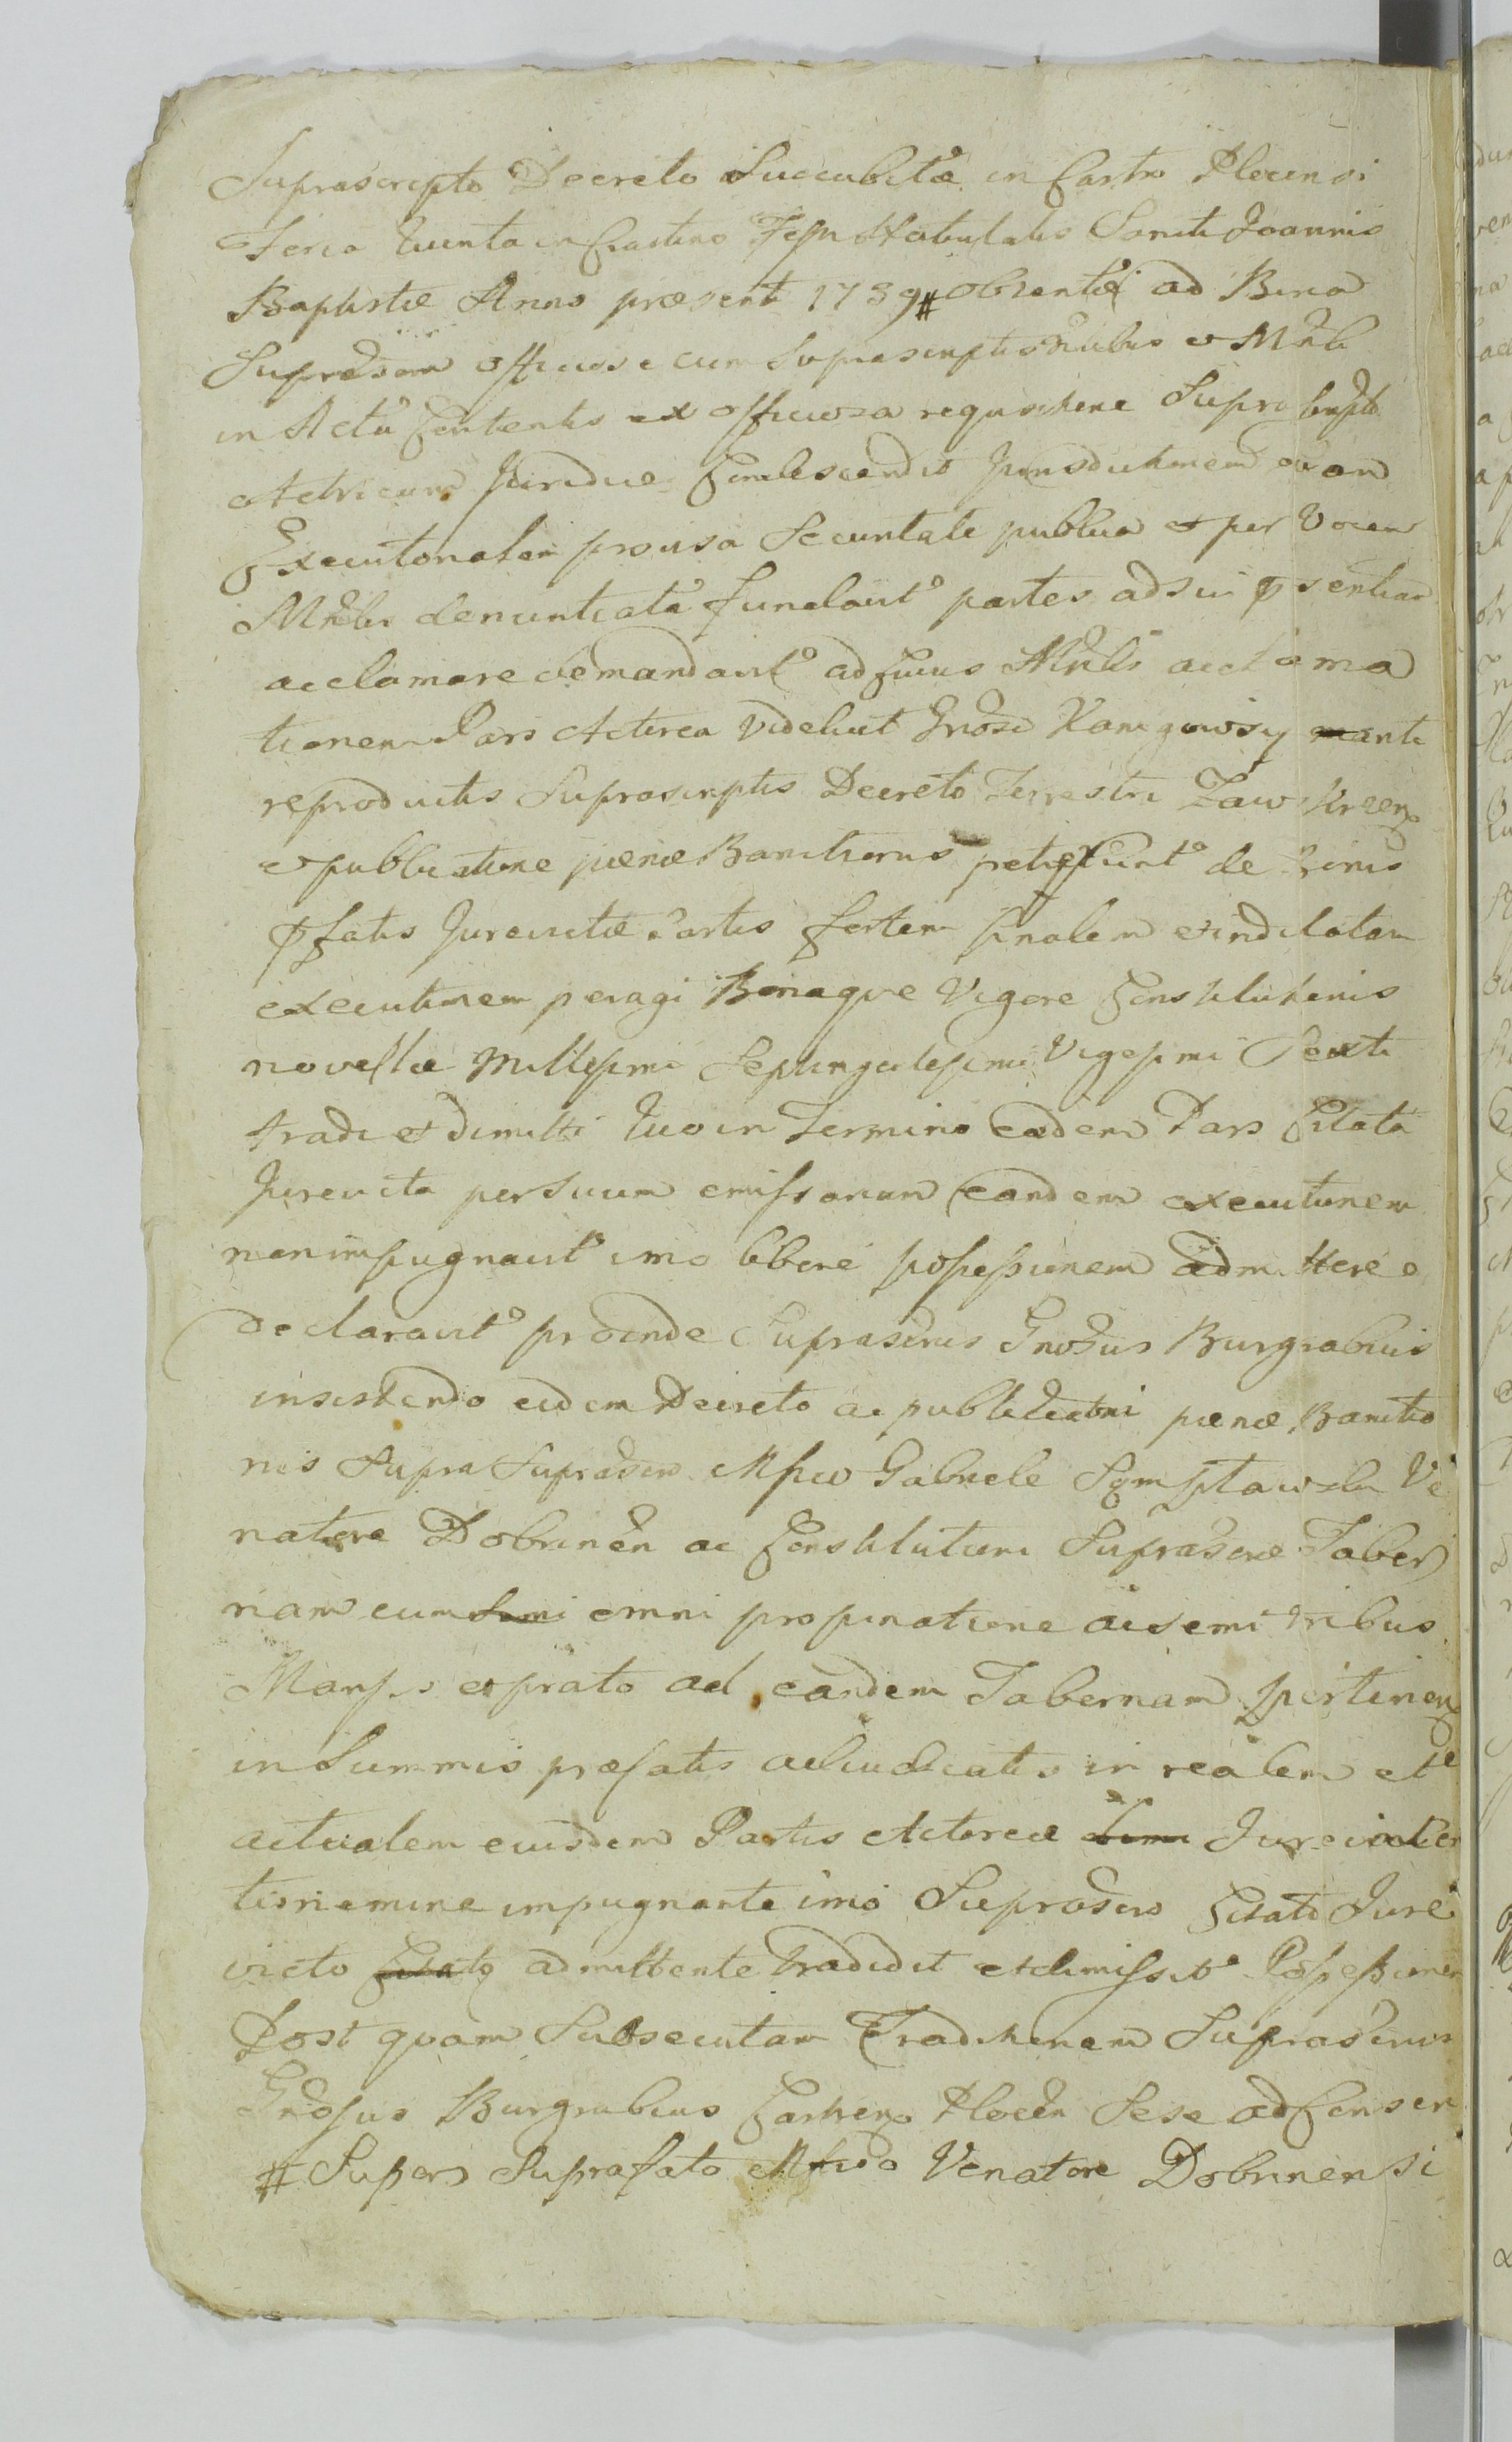 Suprascripto Decreto Succubitæ in Castro Plocensi
Feria Quinta in Crastino Festi Natiuitatis Sancti Joannis
Baptistæ Anno præsenti 1739 # obtentæ ad Bona
Suprascr̃ officiose cum Suprascriptis Nõbibus et Mñli
in Actu Contentis ex officiosa requisitione Supra scrpto
Actricum Juridice Condescendit Jurisdictionem
Executorialem prævisa Securitate publica et per Vocem
Mñlis denuntiata fundavit° partes ad sui p̃sentiam
acclamare demandavit° ad Cuius Mñlis acclama
tionem Pars Actorea Videlicet Gñosi Karigowscy
reproductis Suprascriptis Decreto Terrestri Zawskren̄
et publicatione pœnæ Bannitionis petierunt° de Bonis
p̃fatis Jurevictæ Partis fortem finalem et indilatam
executionem peragi Bonaque Vigore Constitutionis
novellæ Millesimi Septingentesimi Vigesimi Sexti
tradi et dimitti Quo in Termino eadem Pars Citata
Jurevicta per Suum emissarium eandem executionem
non impugnavit° imo libere possessionem admittere
declaravit° proinde Suprascrus Gnosus Burgrabius
insistendo eidem Decreto ac publicationi pœnæ Bannitio
nis Supra Suprascro Mfico Gabriele Ve
natore Dobrinen̄ ac Constitutioni Suprascræ Taber
nam cum omni propinatione ac semi tribus
Mansis et prato ad eandem Tabernam pertinen̄
in Summis præfatis adiudicatis in realem et
actualem eiusdem Partis Actoreæ Jure vincen
tis nemine impugnante imo Suprascro Citato Jure
victo admittente tradidit et dimissit° Possessionem
Post quam Subsecutam Traditionem Suprascrus
Gnosus Burgrabius Castren̄ Plocen̄ Sese ad Censen
# Super Suprafato Mfico Venatore Dobrinensi